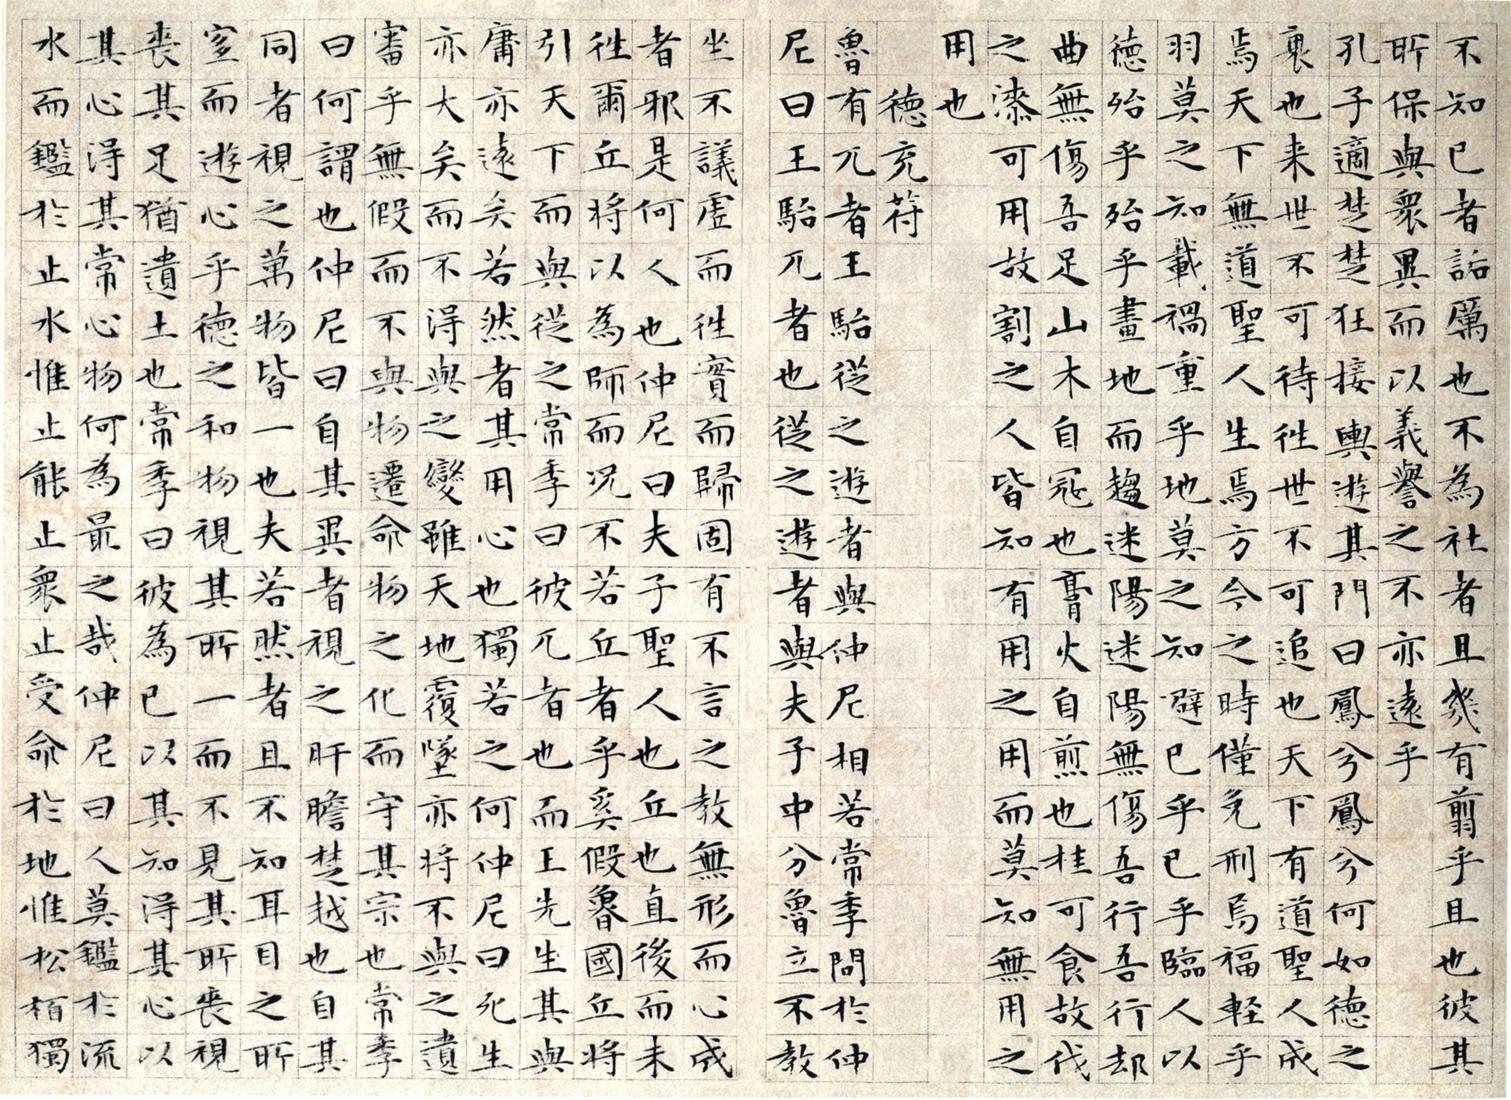 不知已者詬厲也不為社者且幾有翦乎且也彼其
所保與衆異而以義譽之不亦遠乎
孔子適楚楚狂接輿遊其門曰鳳兮鳳兮何如德之
衰也来世不可待往世不可追也天下有道聖人成
焉天下無道聖人生焉方今之時僅免刑焉福軽乎
羽莫之知載禍重乎地莫之知避已乎已乎臨人以
德殆乎殆乎畫地而趨迷陽迷陽無傷吾行吾行却
曲無傷吾足山木自寇也膏火自煎也桂可食故伐
之漆可用故割之人皆知有用之用而莫知無用之
用也
德充符
魯有兀者王駘從之遊者與仲尼相若常季問於仲
尼曰王駘兀者也從之遊者與夫子中分魯立不教
坐不議虛而往實而歸固有不言之教無形而心成
者邪是何人也仲尼曰夫子聖人也丘也直後而未
往爾丘將以為師而況不若丘者乎奚假魯國丘將
引天下而與從之常季曰彼兀者也而王先生其與
庸亦遠矣若然者其用心也獨若之何仲尼曰死生
亦大矣而不得與之變雖天地覆墜亦将不與之遺
審乎無假而不與物遷命物之化而守其宗也常季
曰何謂也仲尼曰自其異者視之肝膽楚越也自其
同者視之萬物皆一也夫若然者且不知耳目之所
宜而遊心乎德之和物視其所一而不見其所喪視
喪其足猶遺土也常季曰彼為已以其知得其心以
其心得其常心物何為最之哉仲尼曰人莫鑑於流
水而鑑於止水惟止能止衆止受命於地惟松柏獨